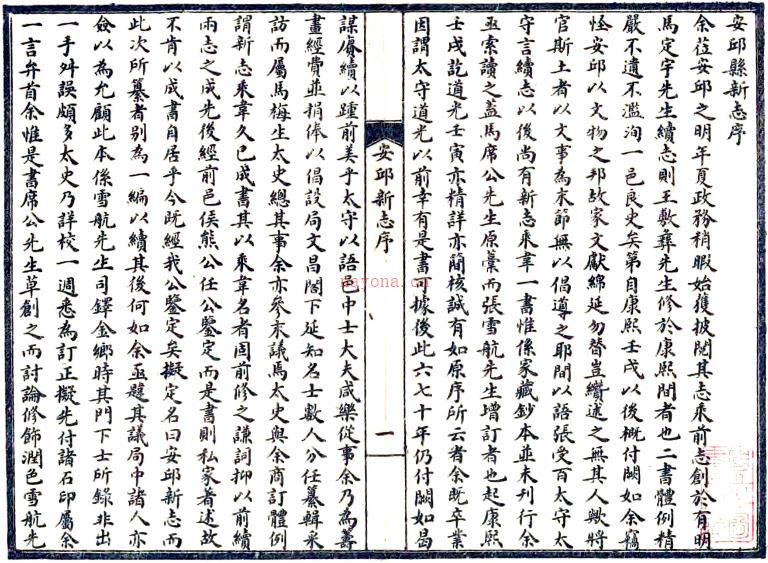 安邱縣新志序
余蒞安邱之明年夏政務稍暇始獲披閱其志乘前志創於有明
馬定宇先生續志則王敷彝先生修於康熙間者也二書體例精
嚴不遺不濫洵一邑良史矣第自康熙壬戌以後概付闕如余竊
怪安邱以文物之邦故家文獻綿延勿替豈纘述之無其人歟將
官斯土者以文事為末節無以倡導之耶間以語張受百太守太
守言續志以後尚有新志乘韋一書惟係家藏鈔本並未刊行余
亟索讀之蓋馬席公先生原藁而張雪航先生增訂者也起康熙
壬戌訖道光壬寅亦精詳亦簡核誠有如原序所云者余既卒業
因謂太守道光以前幸有是書可據後此六七十年仍付闕如曷
安邱新志序
一
謀賡續以踵前美乎太守以語邑中士大夫咸樂從事余乃為籌
畫經費並捐俸以倡設局文昌閣下延知名士數人分任纂輯采
訪而屬馬梅生太史總其事余亦參末議馬太史與余商訂體例
謂新志乘韋久已成書其以乘韋名者固前修之謙詞抑以前續
兩志之成先後經前邑侯熊公任公鑒定而是書則私家著述故
不肯以成書自居乎今既經我公鑒定矣擬定名曰安邱新志而
此次所纂者別為一編以續其後何如余亟韙其議局中諸人亦
僉以為允顧此本係雪航先生司鐸金鄉時其門下士所錄非出
一手舛誤頗多太史乃詳校一週悉為訂正擬先付諸石印屬余
一言弁首余惟是書席公先生草創之而討論修飾潤色雪航先
nayona.cn